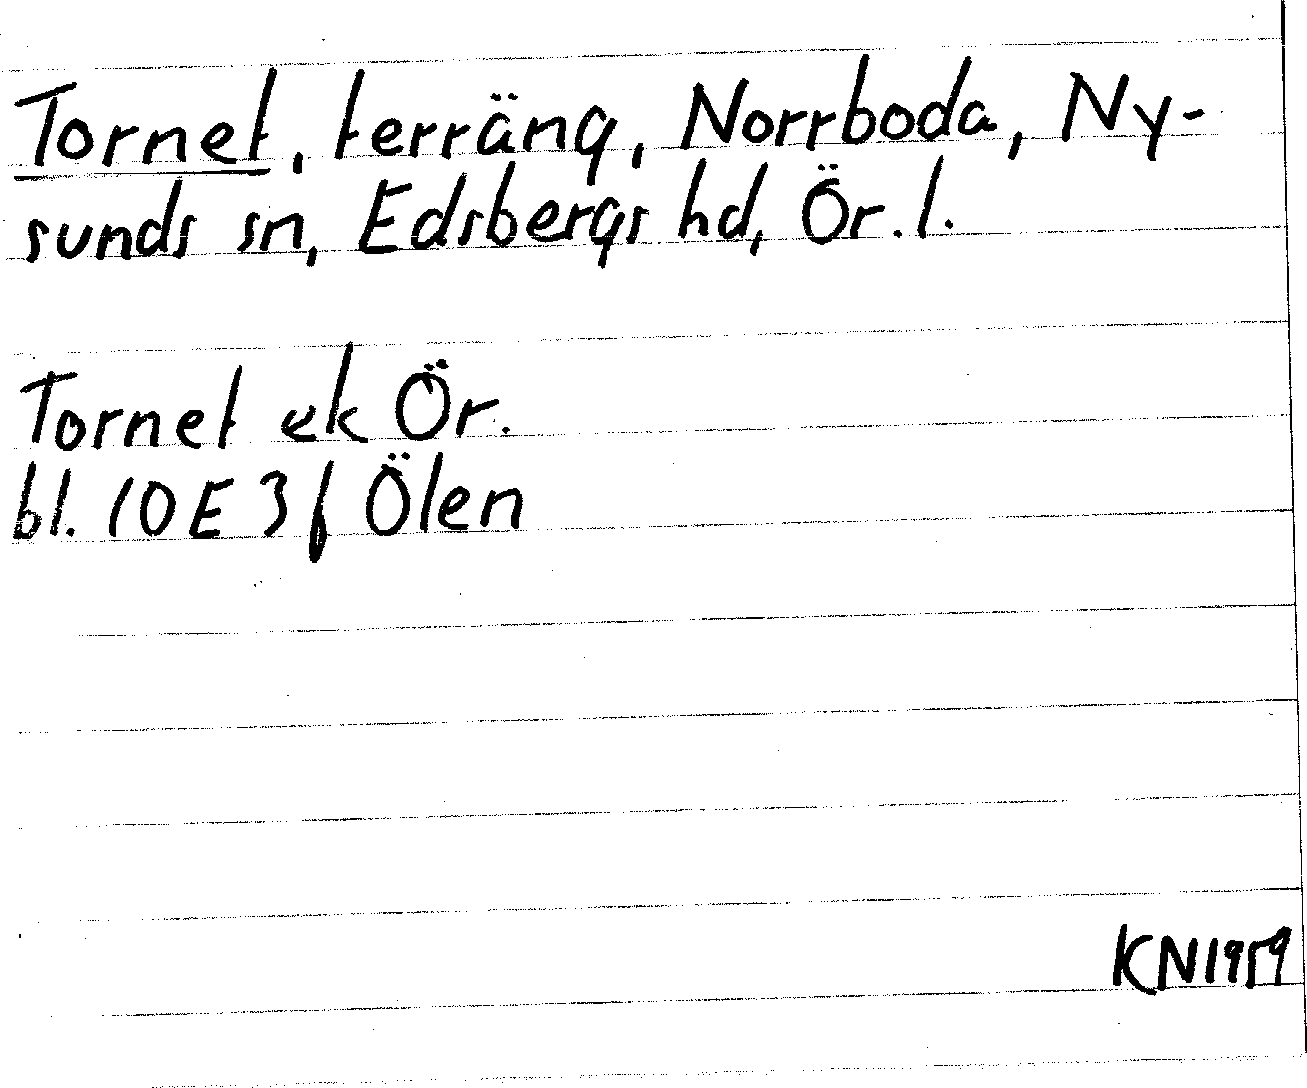 Tornet, terräng, Norrboda, Ny-
sunds sn, Edsbergs hd, Ör. l.
Tornet ek Ör.
bl. 10E 3f Ölen
KN1959